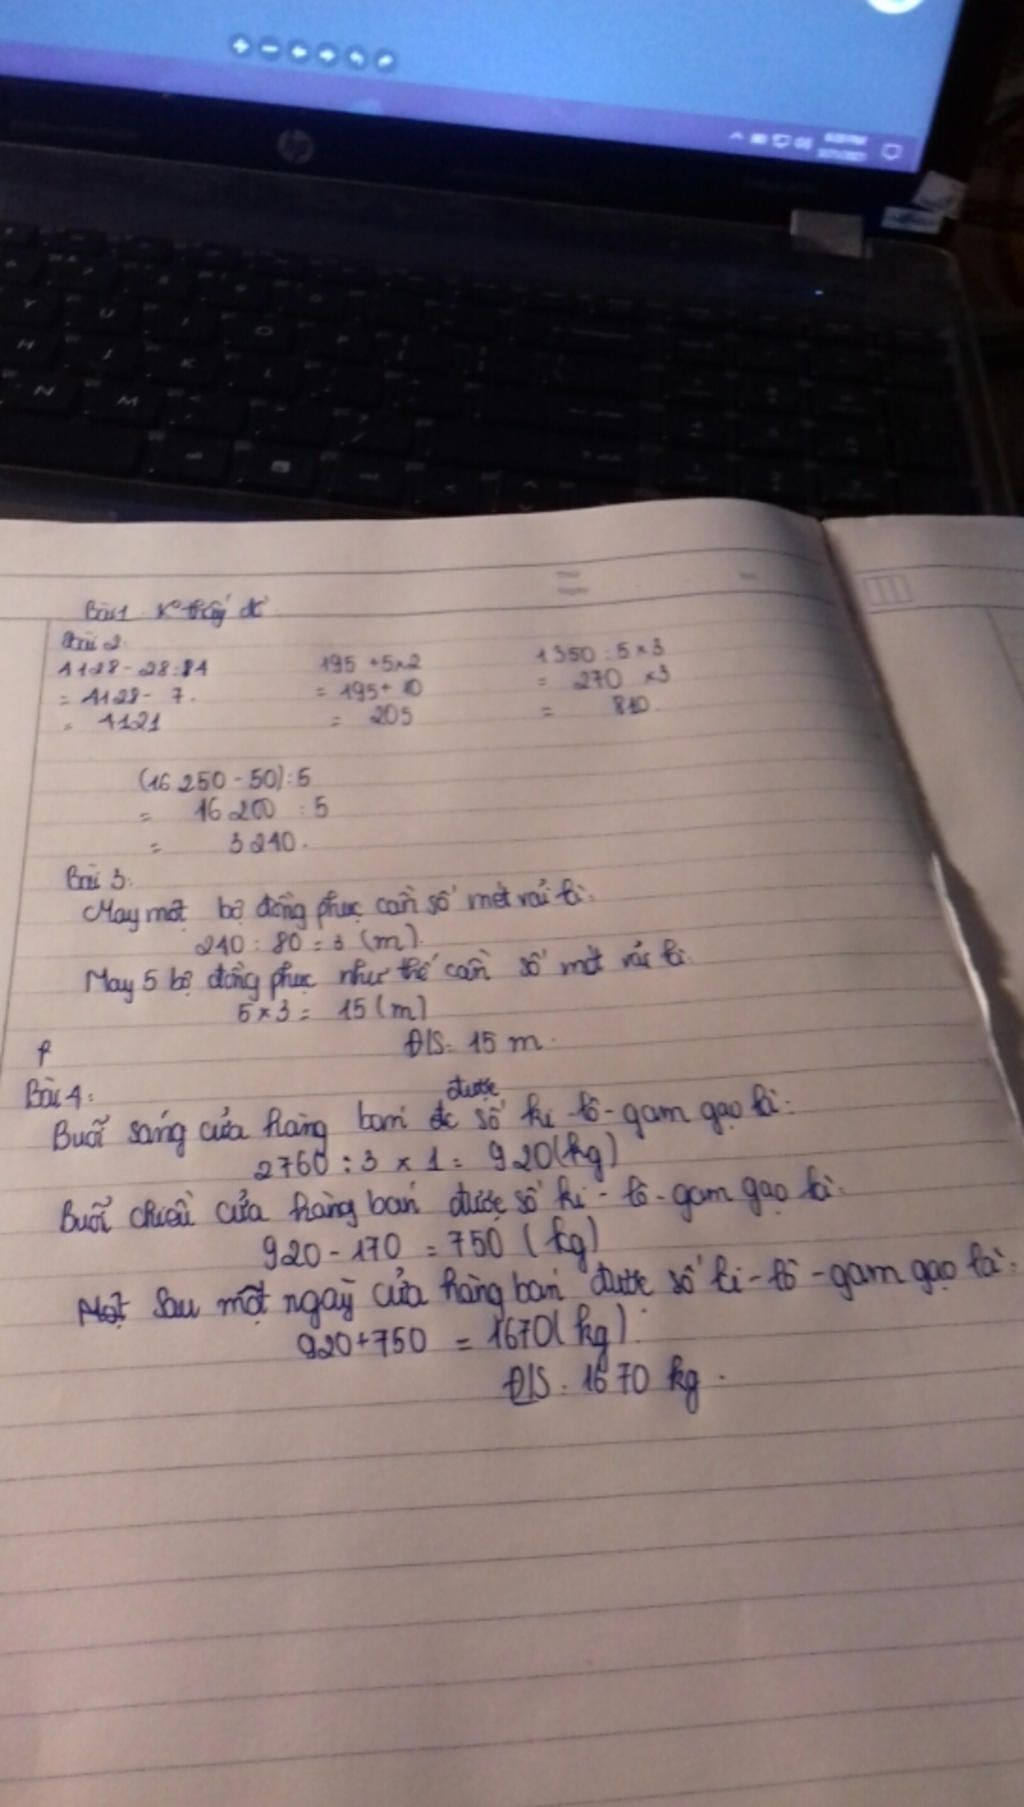 hp
Y U I O P
H J K L
N M
Bài 1
Bài 2:
4128 - 28 : 4 195 + 5 x 2 1350 : 5 x 3
= 4128 - 7. = 195 + 10 = 270 x 3
= 4121 = 205 = 810.
(16 250 - 50) : 5
= 16 200 : 5
= 3 240.
Bài 3:
May một bộ đồng phục cần số mét vải là:
240 : 80 = 3 (m).
May 5 bộ đồng phục như thế cần số mét vải là:
5 x 3 = 15 (m)
Đ/S: 15 m.
Bài 4:
được
Buổi sáng cửa hàng bán số ki-lô-gam gạo là:
2760 : 3 x 1 = 920 (kg)
Buổi chiều cửa hàng bán được số ki-lô-gam gạo là:
920 - 170 = 750 (kg)
Sau một ngày cửa hàng bán được số ki-lô-gam gạo là:
920 + 750 = 1670 (kg)
Đ/S: 1670 kg.